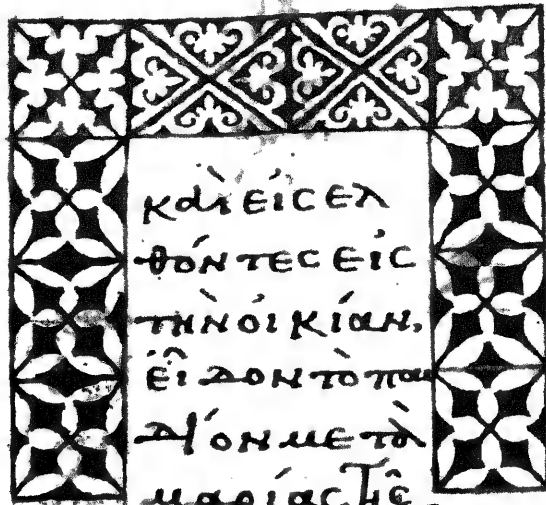 καὶ εἰσελ
θόντες εἰς
τὴν οἰκίαν,
εἶδον τὸ παι
δίον μετὰ
μαρίας τῆς